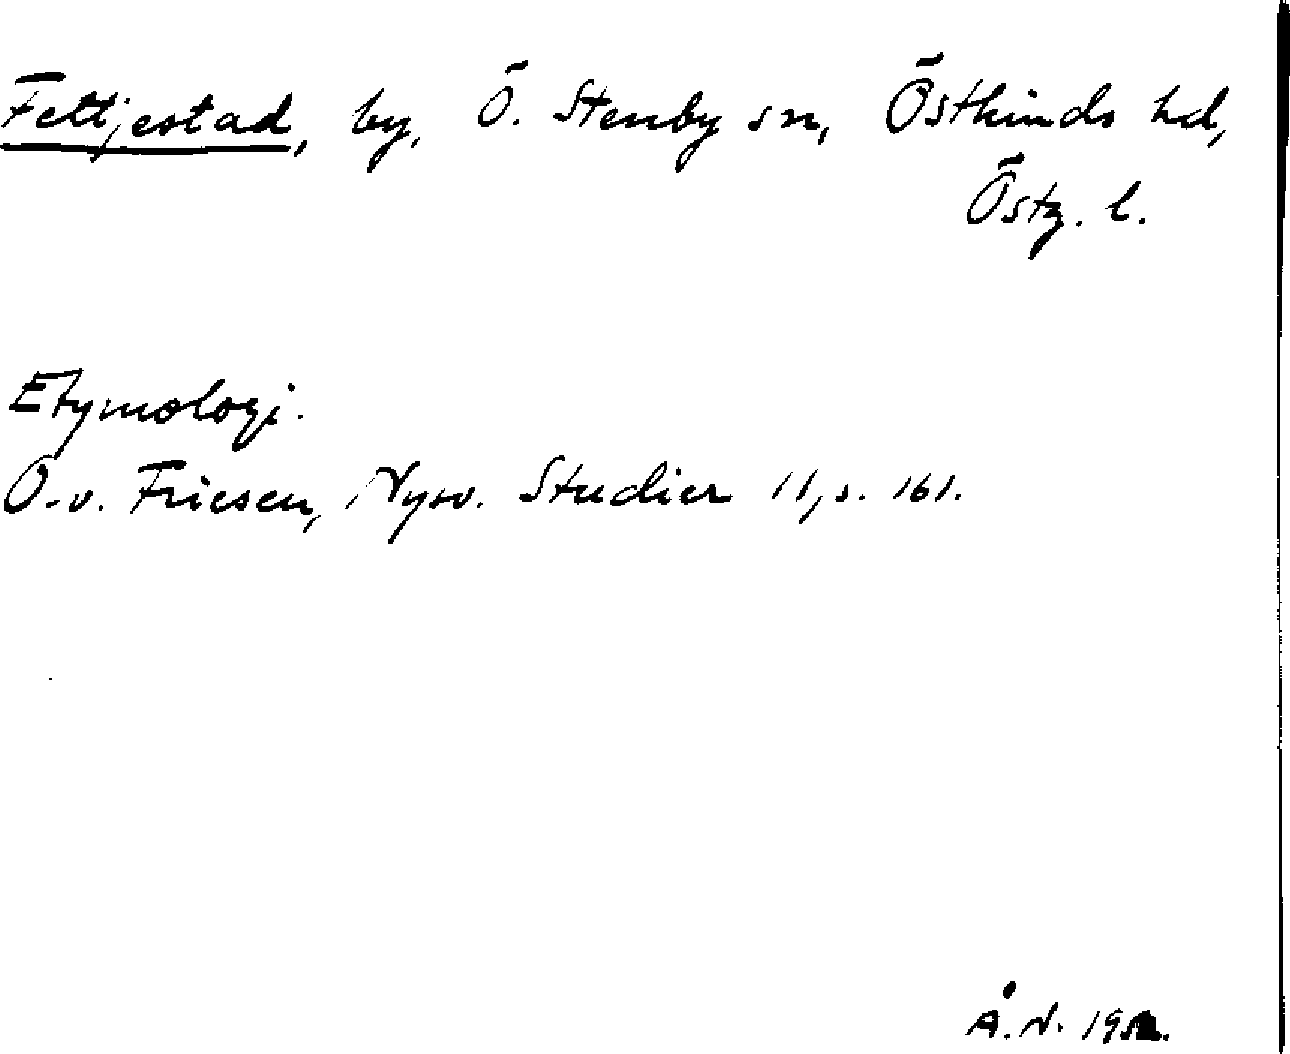 Fettjestad, by, Ö. Stenby sn, Östkinds hd,
Östg. l.
Etymologi.
O. v. Friesen, Nysv. Studier 11, s. 161.
Å. N.